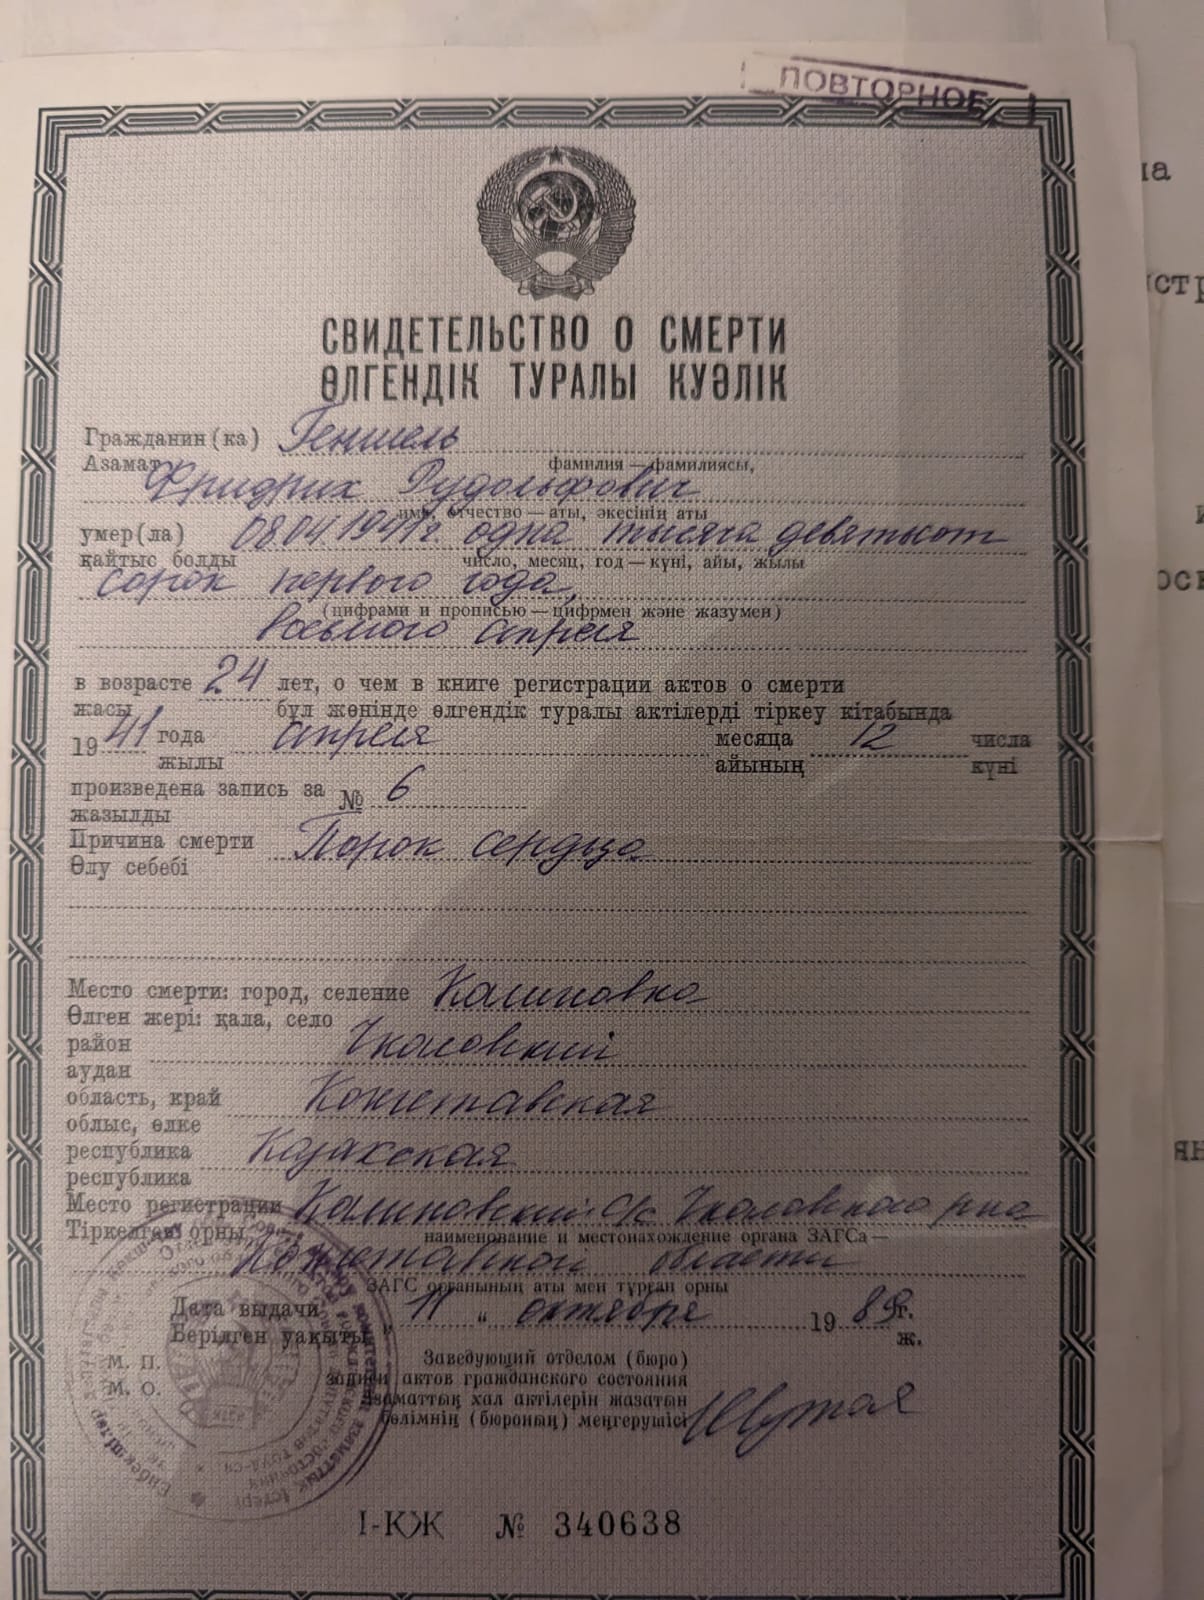 ПОВТОРНОЕ
СВИДЕТЕЛЬСТВО О СМЕРТИ
ӨЛГЕНДІК ТУРАЛЫ КУӘЛІК
Гражданин (ка) Геншель
Азамат
фамилия — фамилиясы,
Фридрих Рудольфович
имя, отчество — аты, әкесінің аты
умер(ла) 08.04.1941г. одна тысяча девятьсот
қайтыс болды
число, месяц, год — күні, айы, жылы
сорок первого года,
(цифрами и прописью — цифрмен және жазумен)
восьмого апреля
в возрасте 24 лет, о чем в книге регистрации актов о смерти
жасы бұл жөнінде өлгендік туралы актілерді тіркеу кітабында
19 41 года апреля месяца 12 числа
жылы айының күні
произведена запись за № 6
жазылды
Причина смерти Порок сердца
Өлу себебі
Место смерти: город, селение Калиновка
Өлген жері: қала, село
район Чкаловский
аудан
область, край Кокчетавская
облыс, өлке
республика Казахская
республика
Место регистрации Калиновский с/с Чкаловского р-на
Тіркелген орны
наименование и местонахождение органа ЗАГСа —
Кокчетавской области
ЗАГС органының аты мен тұрған орны
Дата выдачи „ 11 “ октября 19 89 г.
Берілген уақыты ж.
М. П.
М. О.
Заведующий отделом (бюро)
записи актов гражданского состояния
азаматтық хал актілерін жазатын
бөлімнің (бюроның) меңгерушісі
I-КЖ № 340638